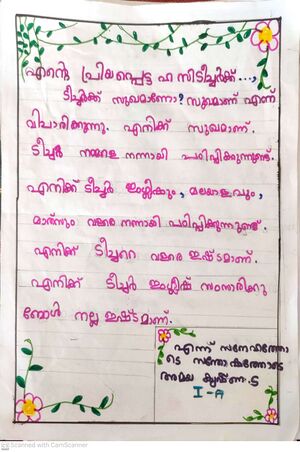 എന്റെ പ്രിയപ്പെട്ട ഹസിടീച്ചർക്ക്...,
ടീച്ചർക്ക് സുഖമാണോ? സുഖമാണ് എന്ന്
വിചാരിക്കുന്നു. എനിക്ക് സുഖമാണ്.
ടീച്ചർ നമ്മളെ നന്നായി പഠിപ്പിക്കുന്നുണ്ട്.
എനിക്ക് ടീച്ചർ ഇംഗ്ലീഷും, മലയാളവും,
മാത്‌സും വളരെ നന്നായി പഠിപ്പിക്കുന്നുണ്ട്.
എനിക്ക് ടീച്ചറെ വളരെ ഇഷ്ടമാണ്.
എനിക്ക് ടീച്ചർ ഇംഗ്ലീഷ് സംസാരിക്കു
മ്പോൾ നല്ല ഇഷ്ടമാണ്.
എന്ന് സനേഹത്തോ
ടെ സന്തോഷത്തോടെ
അമയ കൃഷ്ണ.S
I-A
Scanned with CamScanner